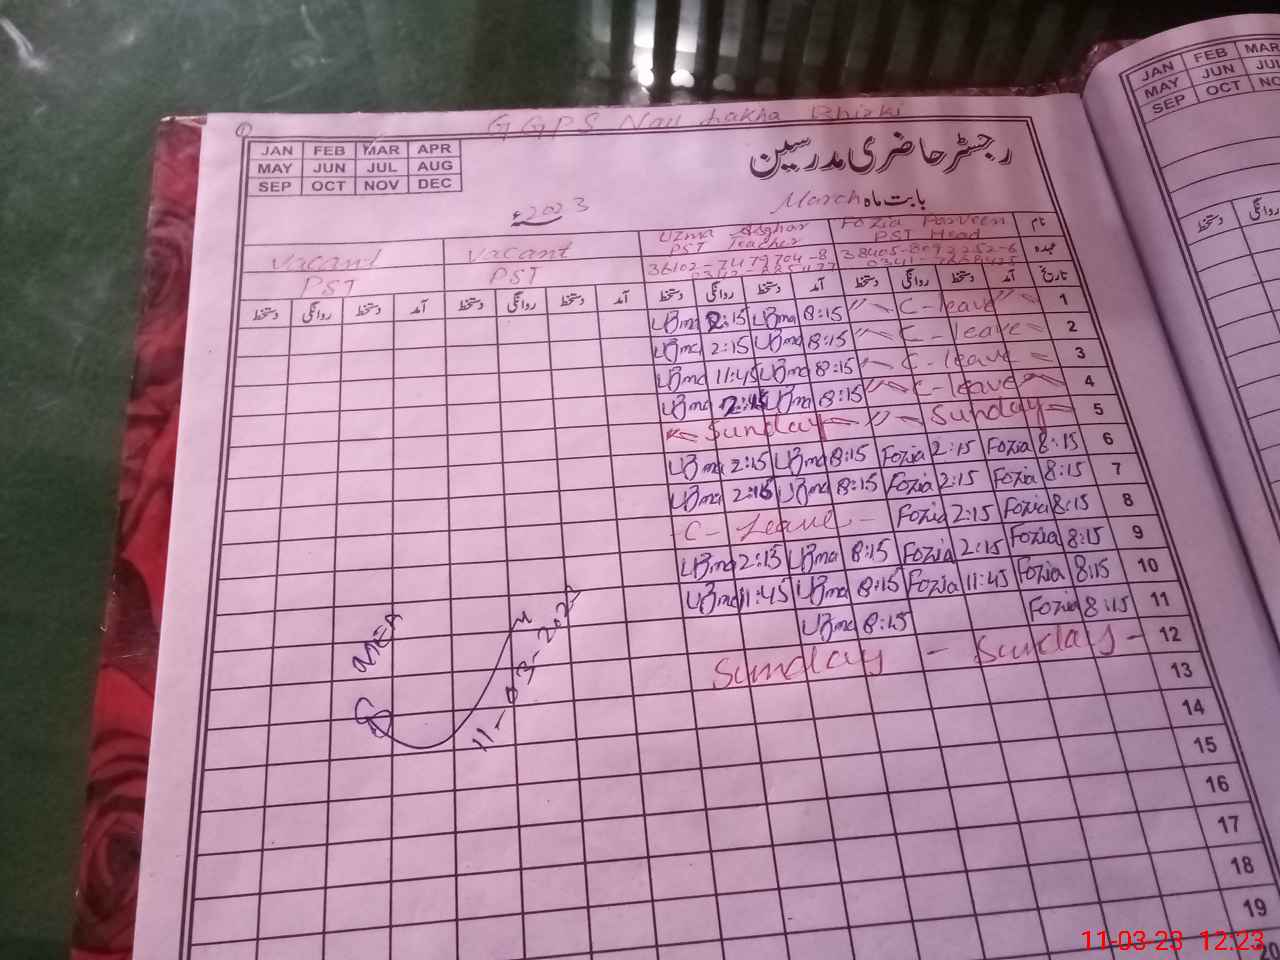 GGPS Nau Lakha Bhirki
JAN FEB MAR APR
MAY JUN JUL AUG
SEP OCT NOV DEC
رجسٹر حاضری مدرسین
بابت ماہ March 2023ء
نام Fozia Parveen Uzma Asghar Vacant Vacant
عہدہ PST Head PST Teacher PST PST
38405-8092252-6 36102-7479704-8
تاریخ آمد دستخط روانگی دستخط آمد دستخط روانگی دستخط آمد دستخط روانگی دستخط آمد دستخط روانگی دستخط
1 C-leave 8:15 Uzma 2:15 Uzma
2 C-leave 8:15 Uzma 2:15 Uzma
3 C-leave 8:15 Uzma 11:45 Uzma
4 C-leave 8:15 Uzma 2:15 Uzma
5 Sunday Sunday
6 8:15 Fozia 2:15 Fozia 8:15 Uzma 2:15 Uzma
7 8:15 Fozia 2:15 Fozia 8:15 Uzma 2:15 Uzma
8 8:15 Fozia 2:15 Fozia C-Leave
9 8:15 Fozia 2:15 Fozia 8:15 Uzma 2:15 Uzma
10 8:15 Fozia 11:45 Fozia 8:15 Uzma 11:45 Uzma
11 8:15 Fozia 8:15 Uzma
12 Sunday - Sunday
13
14
15
16
17
18
19
20
MEA
11-03-2023
JAN FEB MAR
MAY JUN JUL
SEP OCT
دستخط روانگی
11-03-23 12:23